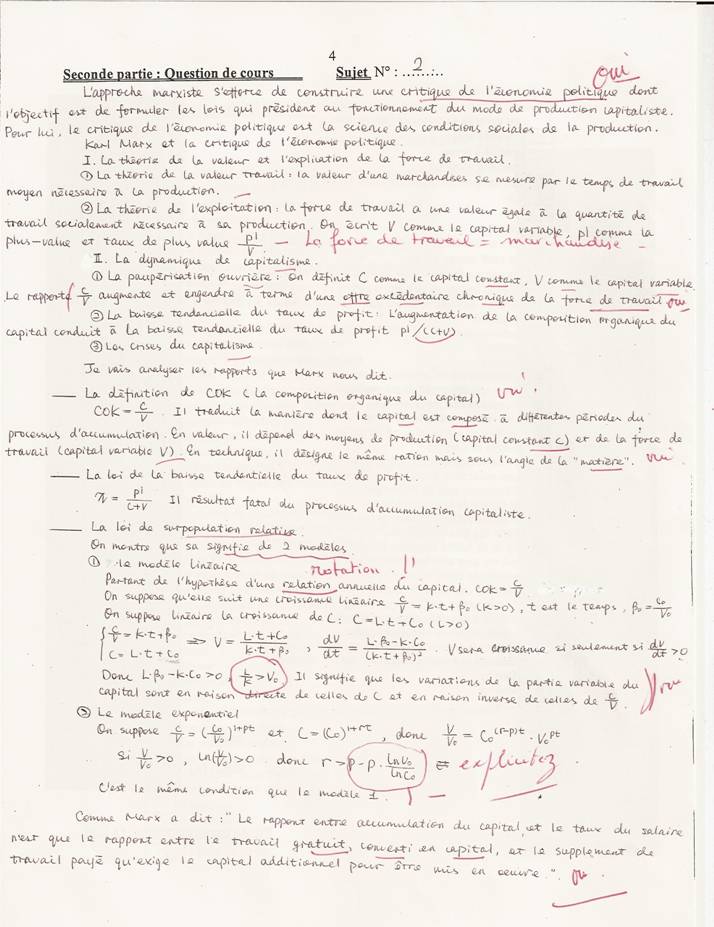 4
Seconde partie : Question de cours Sujet N° : ...2...
oui
L'approche marxiste s'efforce de construire une critique de l'économie politique dont
l'objectif est de formuler les lois qui président au fonctionnement du mode de production capitaliste.
Pour lui, le critique de l'économie politique est la science des conditions sociales de la production.
Karl Marx et la critique de l'économie politique.
I. La théorie de la valeur et l'explication de la force de travail.
① La théorie de la valeur travail : la valeur d'une marchandises se mesure par le temps de travail
moyen nécessaire à la production.
② La théorie de l'exploitation : la force de travail a une valeur égale à la quantité de
travail socialement nécessaire à sa production. On écrit V comme le capital variable, pl comme la
plus-value et taux de plus value pl/V. — La force de travail = marchandise —
II. La dynamique de capitalisme.
① La paupérisation ouvrière : On définit C comme le capital constant, V comme le capital variable.
Le rapport C/V augmente et engendre à terme d'une offre excédentaire chronique de la force de travail oui
② La baisse tendancielle du taux de profit : L'augmentation de la composition organique du
capital conduit à la baisse tendancielle du taux de profit pl/(C+V)
③ Les crises du capitalisme.
Je vais analyser les rapports que Marx nous dit.
— La définition de COK (la composition organique du capital) oui
COK = C/V. Il traduit la manière dont le capital est composé à différentes périodes du
processus d'accumulation. En valeur, il dépend des moyens de production (capital constant C) et de la force de
travail (capital variable V). En technique, il désigne le même ration mais sous l'angle de la "matière". oui
— La loi de la baisse tendentielle du taux de profit.
π = pl/(C+V) Il résultat fatal du processus d'accumulation capitaliste.
— La loi de surpopulation relative.
On montre que sa signifie de 2 modèles
① le modèle linéaire rotation !!
Partant de l'hypothèse d'une relation annuelle du capital. COK = C/V
On suppose qu'elle suit une croissance linéaire C/V = k·t + β₀ (k>0), t est le temps, β₀ = C₀/V₀
On suppose linéaire la croissance de C : C = L·t + C₀ (L>0)
{ C/V = k·t + β₀ ; C = L·t + C₀ ⇒ V = (L·t + C₀)/(k·t + β₀), dV/dt = (L·β₀ - k·C₀)/(k·t + β₀)². V sera croissance si seulement si dV/dt > 0
Donc L·β₀ - k·C₀ > 0, L/k > V₀ Il signifie que les variations de la partie variable du
capital sont en raison directe de celles de C et en raison inverse de celles de C/V. oui
② Le modèle exponentiel
On suppose C/V = (C₀/V₀)^(1+pt) et C = (C₀)^(1+rt), donc V/V₀ = C₀^((r-p)t) · V₀^(pt)
Si V/V₀ > 0, ln(V/V₀) > 0 donc r > p - p · lnV₀/lnC₀ explicitez
C'est le même condition que le modèle 1.
Comme Marx a dit : "Le rapport entre accumulation du capital et le taux du salaire
n'est que le rapport entre le travail gratuit, converti en capital, et le supplement de
travail payé qu'exige le capital additionnel pour être mis en oeuvre.". oui